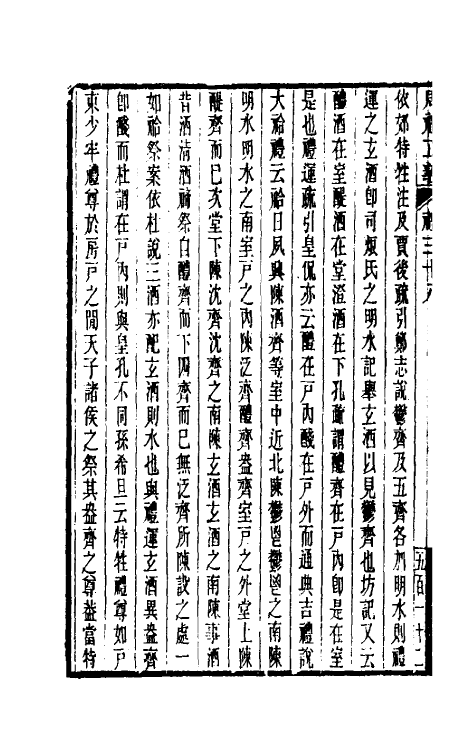 周禮正義 禮三十八
五百一十二
依郊特牲注及賈後疏引鄭志說鬱齊及五齊各加明水則禮
運之玄酒卽司烜氏之明水記舉玄酒以見鬱齊也坊記又云
醴酒在室醍酒在堂澄酒在下孔疏謂醴齊在戸內卽是在室
是也禮運疏引皇侃亦云醴在戸內醆在戸外而通典吉禮說
大祫禮云祫日夙興陳酒齊等室中近北陳鬱鬯鬱鬯之南陳
明水明水之南室戸之內陳泛齊醴齊盎齊室戸之外堂上陳
醍齊而已次堂下陳沈齊沈齊之南陳玄酒玄酒之南陳事酒
昔酒淸酒禘祭自醴齊而下四齊而已無泛齊所陳設之處一
如祫祭案依杜說三酒亦配玄酒則水也與禮運玄酒異盎齊
卽醆而杜謂在戸內則與皇孔不同孫希旦云特牲禮尊如戸
東少牢禮尊於房戸之閒天子諸侯之祭其盎齊之尊葢當特